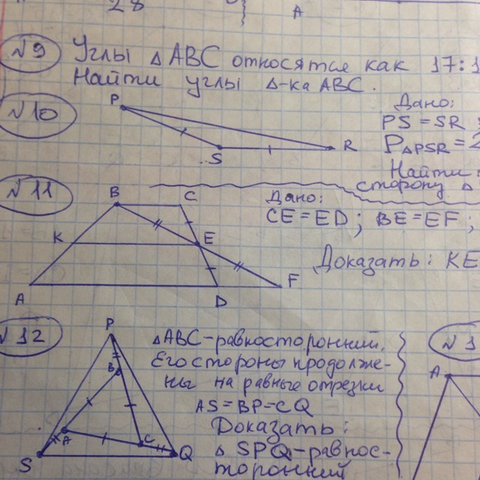 28
A
№9 Углы △ABC относятся как 17:1
Найти углы △-ка ABC.
№10
P
S
R
Дано:
PS = SR
P△PSR = 2
Найти
сторону △
№11
B
C
K
E
A
D
F
Дано:
CE = ED; BE = EF;
Доказать: KE
№12
P
B
A
C
S
Q
△ABC - равносторонний.
Его стороны продолже-
ны на равные отрезки
AS = BP = CQ
Доказать:
△ SPQ - равнос-
торонний
№1
A